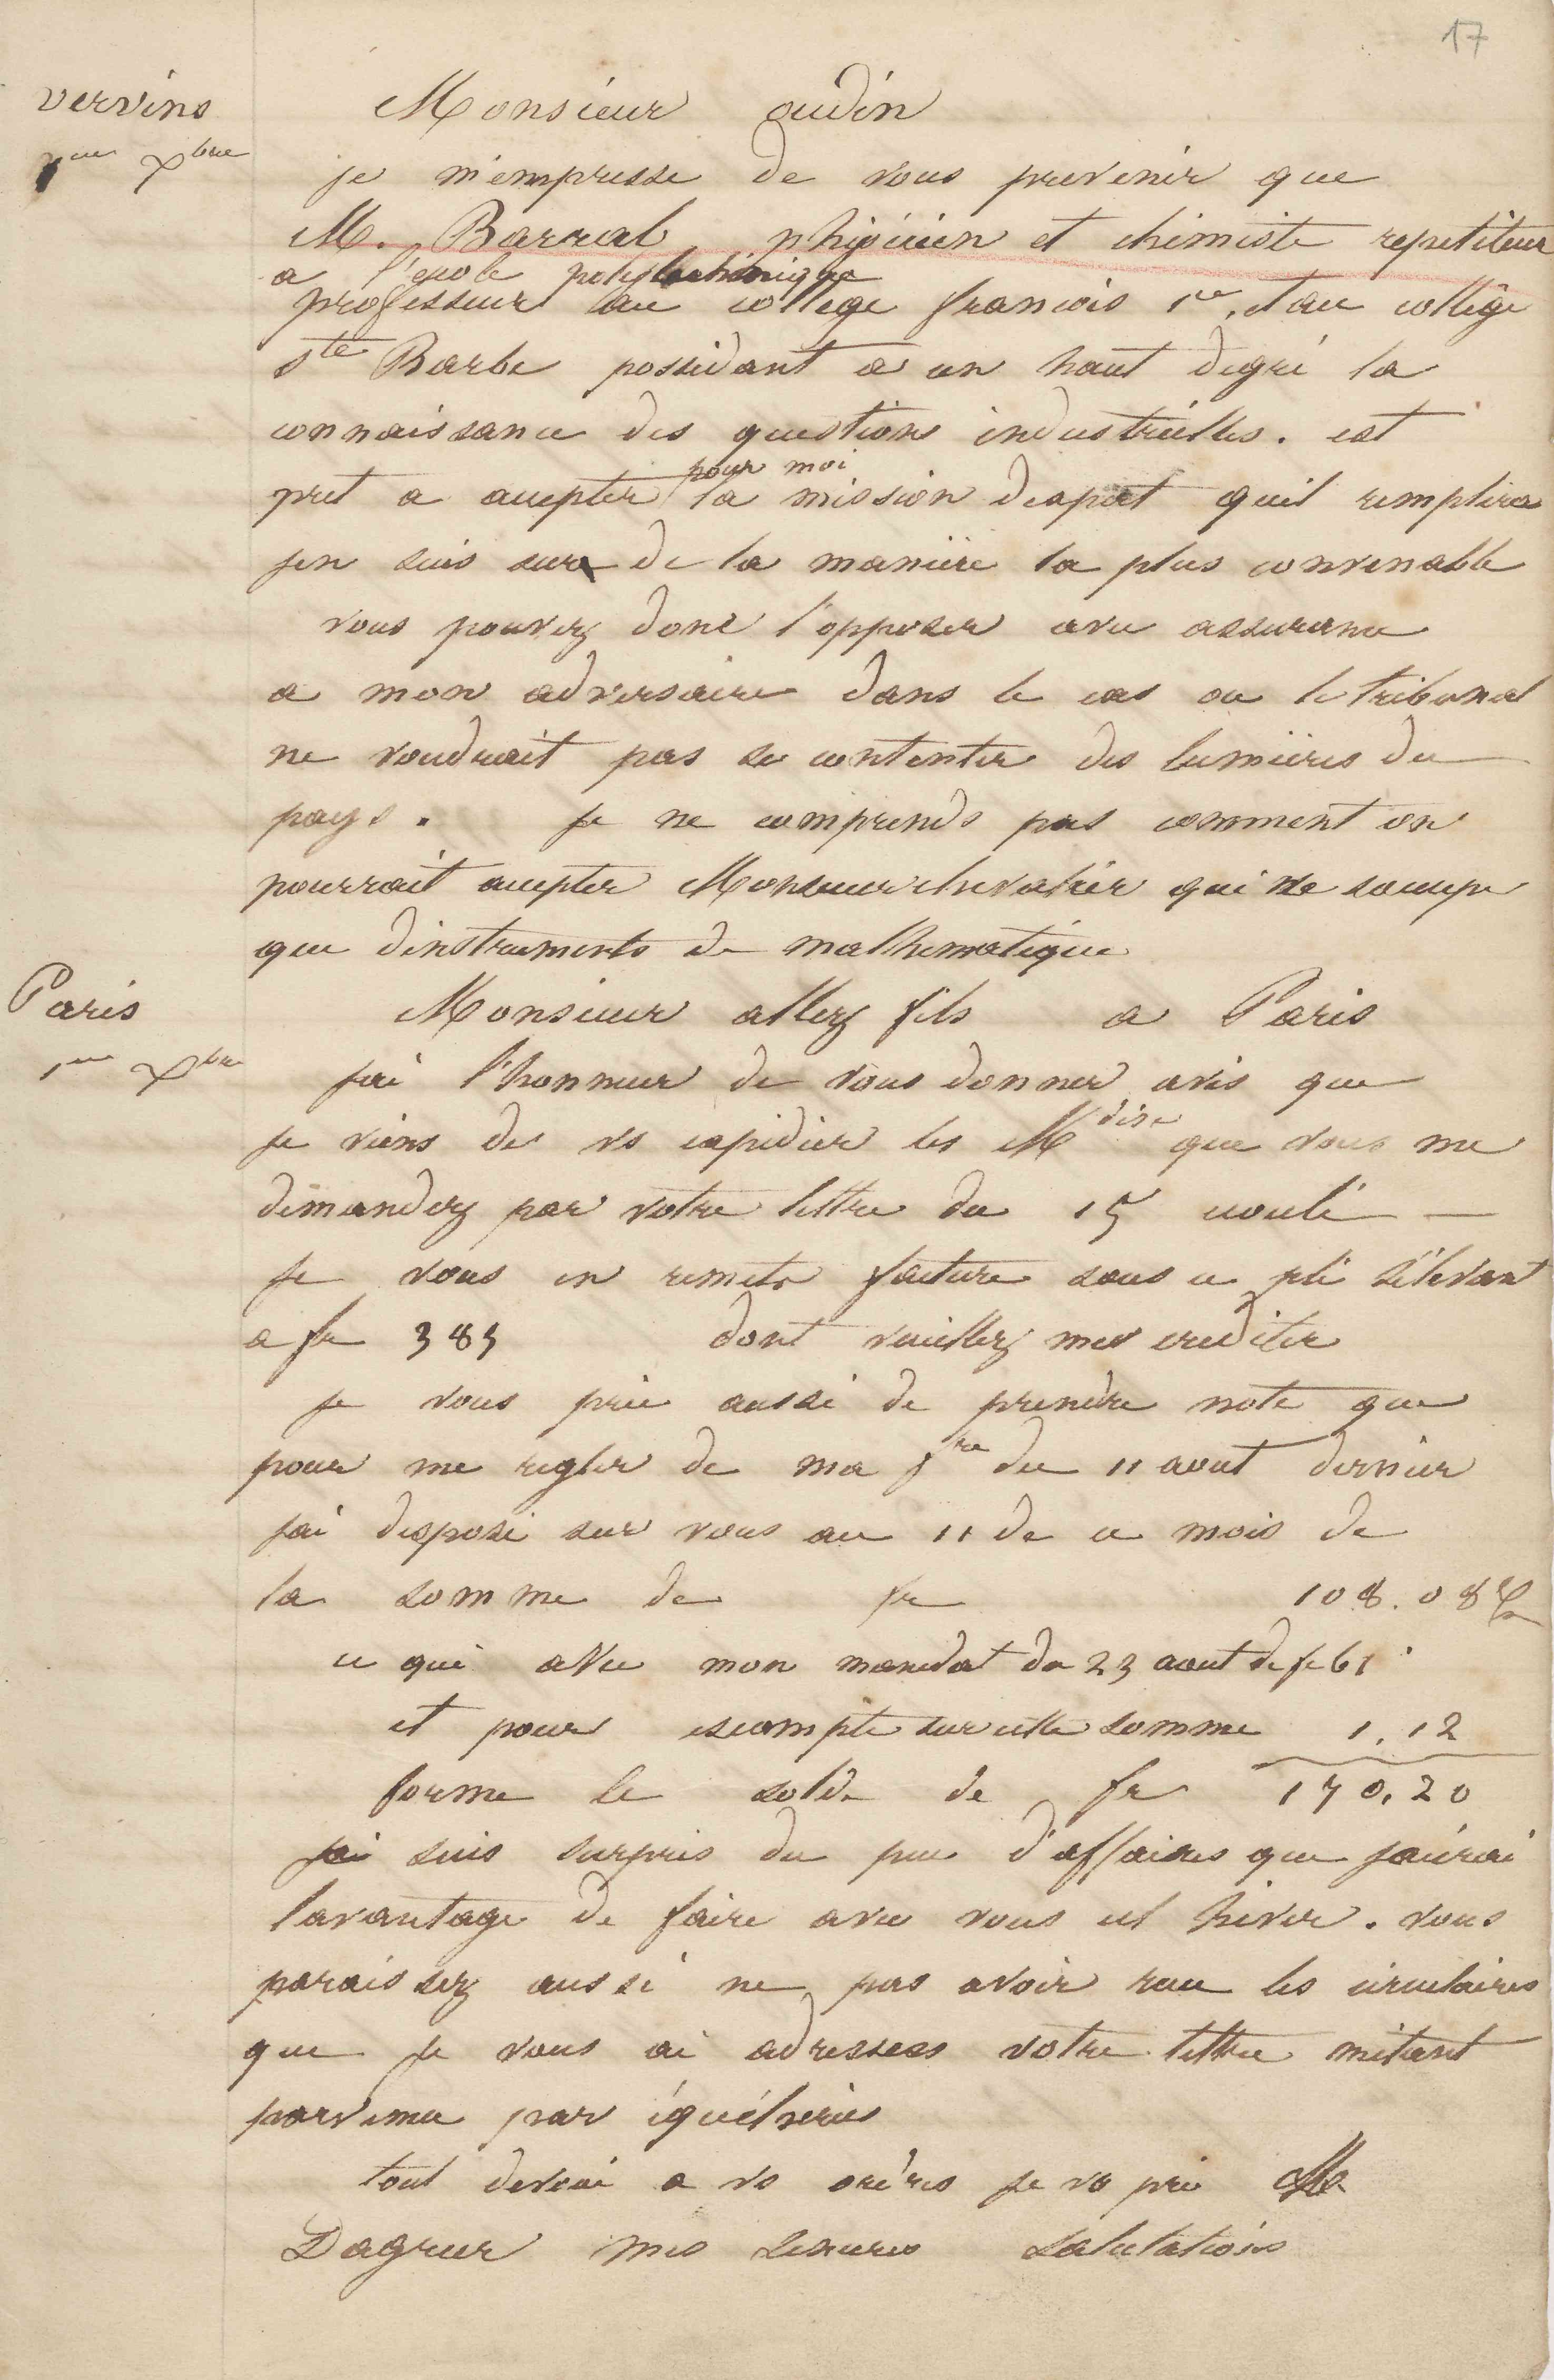 17
vervins
Monsieur oudin
1er Xbre
je m'empresse de vous prevenir que
M. Barral, phisicien et chimiste repetiteur
a l'ecole polytechnique
professeur au college francois 1er, et au collège
Ste Barbe possedant a un haut degré la
connaissance des questions industrielles. est
pret a accepter pour moi la mission dexpert quil remplira
jen suis sur de la manière la plus convenable
vous pouvez donc l'opposer avec assurance
a mon adversaire dans le cas ou le tribunal
ne voudrait pas se contenter des lumières du
pays. je ne comprends pas comment on
pourrait accepter Monsieur chevalier qui ne soccupe
que dinstruments de mathematique
Paris
Monsieur allez fils a Paris
1er Xbre
jai l'honneur de vous donner avis que
je viens de vs expedier les Mdises que vous me
demandez par votre lettre du 15 coulé
je vous en remets facture sous ce pli s'élevant
a fr 383 dont veuillez me crediter
je vous prie aussi de prendre note que
pour me regler de ma fre du 11 aout dernier
jai disposé sur vous au 11 de ce mois de
la somme de fr 108.08
ce qui avec mon mandat du 23 aout de fr 61
et pour escompte sur cette somme 1.12
forme le solde de fr 170.20
je suis surpris du peu d'affaires que jaurai
lavantage de faire avec vous cet hiver. vous
paraissez aussi ne pas avoir recu les circulaires
que je vous ai adressees votre lettre métant
parvenue par équéheries
tout devoué a vs ordres je vs prie
Dagreer mes sinceres salutations